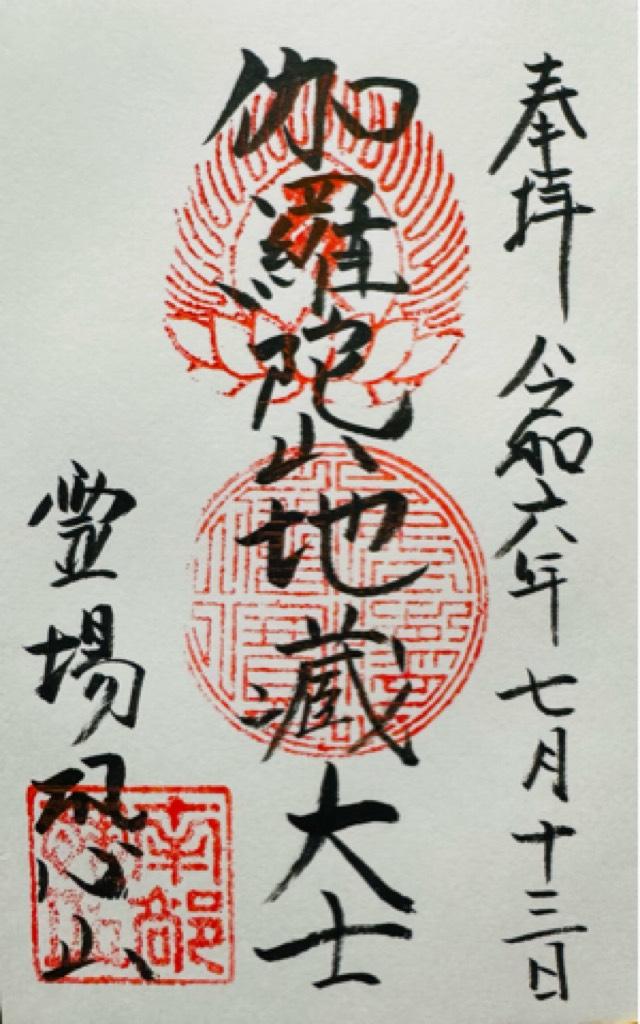 奉拝 令和六年七月十三日
伽羅陀山地蔵大士
霊場恐山
南部